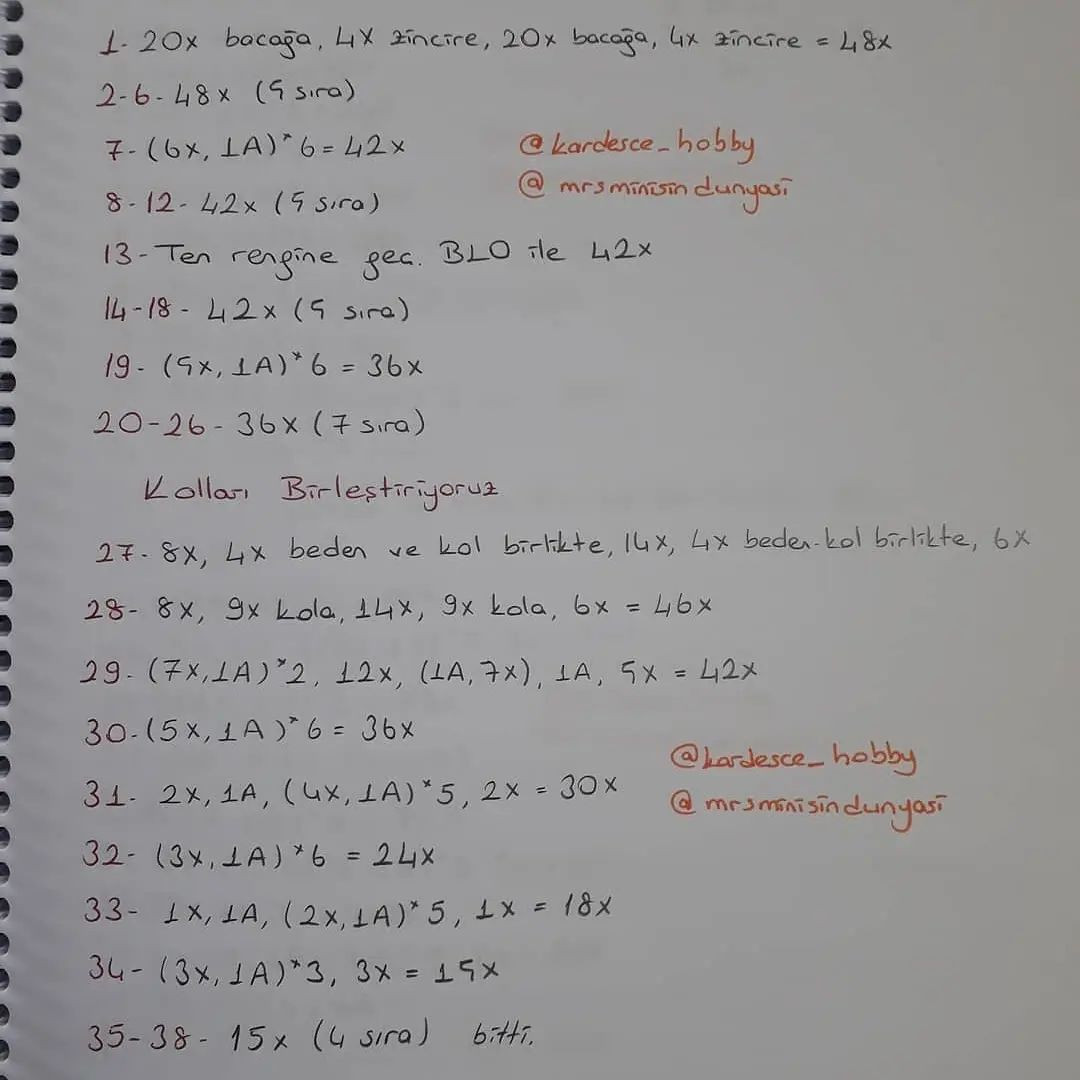 1- 20x bacağa, 4x zincire, 20x bacağa, 4x zincire = 48x
2-6- 48x (5 sıra)
7- (6x, 1A)*6 = 42x
@kardesce_hobby
8-12- 42x (5 sıra)
@mrsminisindunyasi
13- Ten rengine geç. BLO ile 42x
14-18- 42x (5 sıra)
19- (5x, 1A)*6 = 36x
20-26- 36x (7 sıra)
Kolları Birleştiriyoruz
27- 8x, 4x beden ve kol birlikte, 14x, 4x beden-kol birlikte, 6x
28- 8x, 9x kola, 14x, 9x kola, 6x = 46x
29- (7x,1A)*2, 12x, (1A,7x), 1A, 5x = 42x
30- (5x,1A)*6 = 36x
31- 2x, 1A, (4x,1A)*5, 2x = 30x
@kardesce_hobby
@mrsminisindunyasi
32- (3x,1A)*6 = 24x
33- 1x, 1A, (2x,1A)*5, 1x = 18x
34- (3x,1A)*3, 3x = 15x
35-38- 15x (4 sıra) bitti.